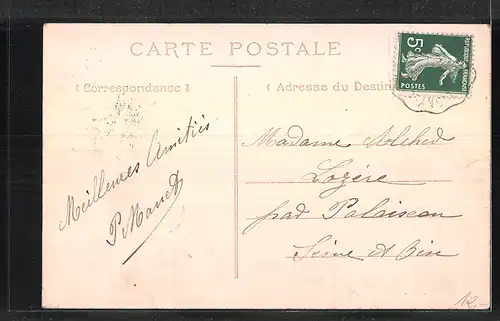 CARTE POSTALE
( Correspondance )
( Adresse du Destin
5c
POSTES
Meilleures Amitiés
P Manet
Madame
Lozère
par Palaiseau
Seine et Oise
12,-